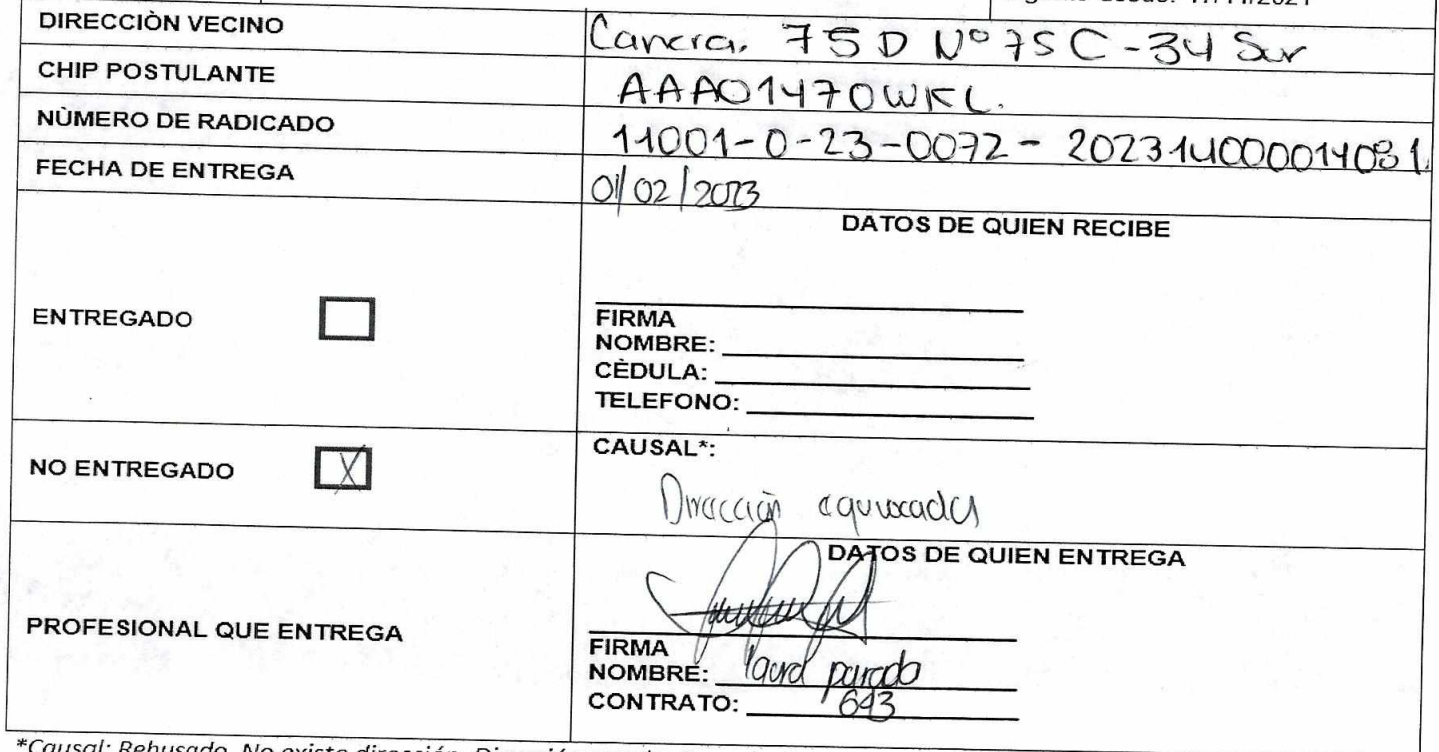 DIRECCIÒN VECINO
Carrera. 75 D Nº 75 C - 34 Sur
CHIP POSTULANTE
AAA0147OWKL.
NÙMERO DE RADICADO
11001-0-23-0072 - 20231400014081.
FECHA DE ENTREGA
01/02/2023
DATOS DE QUIEN RECIBE
ENTREGADO
FIRMA
NOMBRE:
CÈDULA:
TELEFONO:
NO ENTREGADO
X
CAUSAL*:
Dirección equivocada
DATOS DE QUIEN ENTREGA
PROFESIONAL QUE ENTREGA
FIRMA
NOMBRE: laura parado
CONTRATO: 643
*Causal: Rehusado, No existe dirección, Dirección